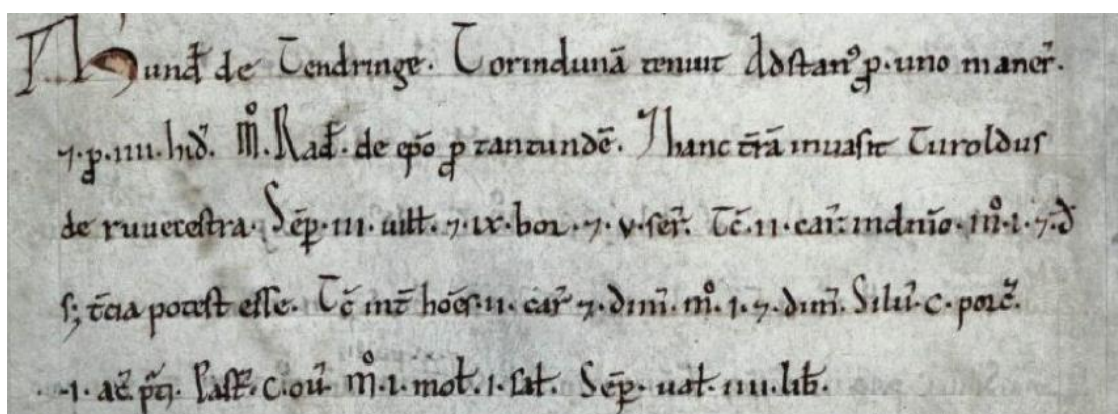 Hund̄ de Tendringe. Torindunā tenuit Adstanꝰ ꝓ. uno maner̄.
⁊. ꝓ. iiii. hid̄. m̊. Rad̄. de ep̄o ꝓ tantundē. ⁊ hanc t̄rā inuasit Turoldus
de ruuecestra. Sēp. iii. uilł. ⁊. ix. bor. ⁊. v. ser̄. Tc̄. ii. car̄. in dn̄io. m̊. i. ⁊. d̄
s; t̄cia potest esse. Tc̄ int̄ hoēs. ii. car̄ ⁊. dim̄. m̊. i. ⁊. dim̄. Silū. c. porc̄.
.i. ac̄. p̄ti. Past̄. c. oū. m̊. i. moł. i. sał. Sēp. uał. iiii. lib̄.